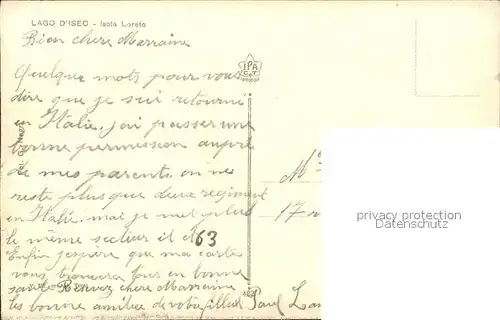 LAGO D'ISEO - Isola Loreto
Bien chere Marraine
Quelque mots pour vous
dire que je suis retourne
en Italie, j'ai passer une
bonne permission aupre
de mes parents. on ne
reste plus que deux regiment
en Italie. mai je met plus
le même secteur il et 63
Enfin j'espère que ma carte
vous trouvera tous en bonne
santé Recevez chere Marraine
les bonne amitiee de votre filleul Paul
IPA
C.o.T.
M
17 r
privacy protection
Veldkamp Verlag